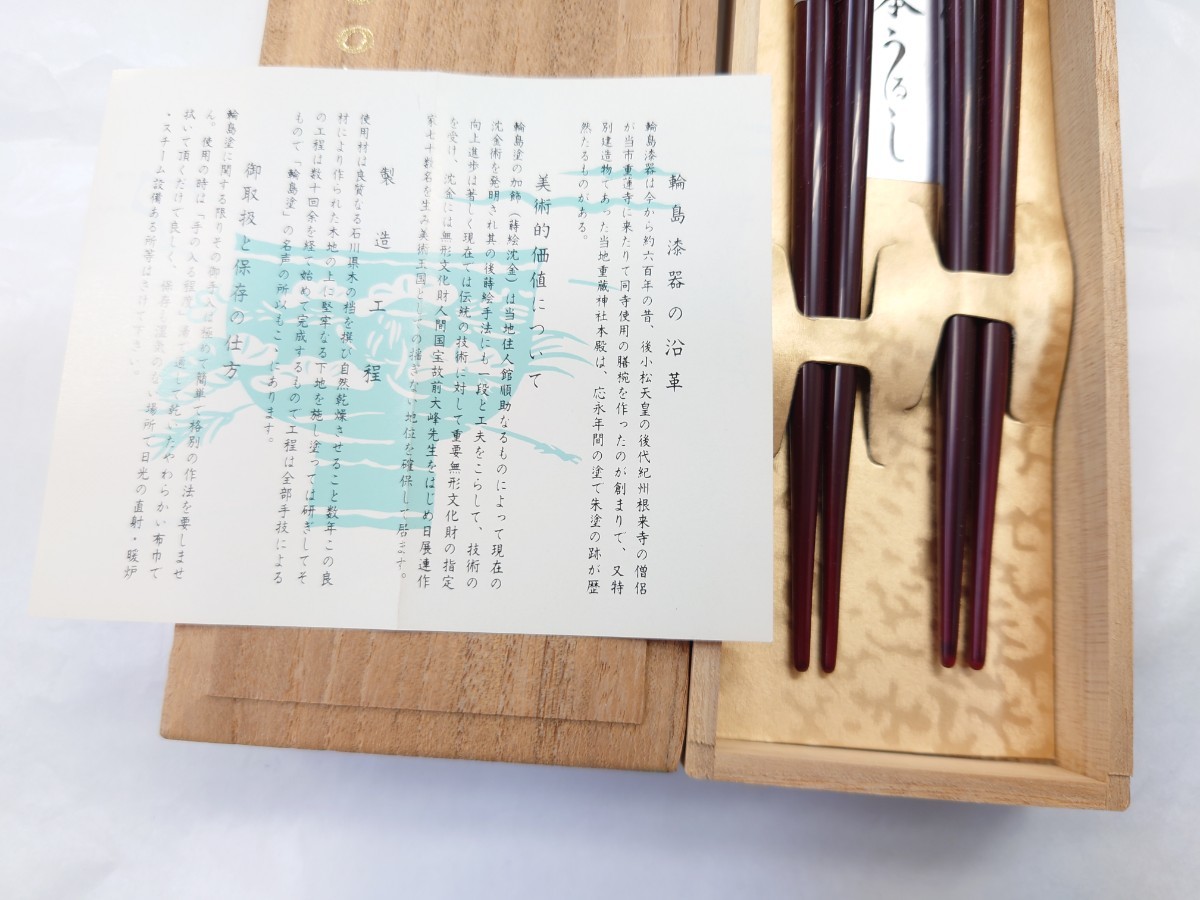 輪島漆器の沿革
輪島漆器は今から約六百年の昔、後小松天皇の後代紀州根来寺の僧侶
が当市重蓮寺に来たりて同寺使用の膳椀を作ったのが創まりで、又特
別建造物であった当地重蔵神社本殿は、応永年間の塗で朱塗の跡が歴
然たるものがある。
美術的価値について
輪島塗の加飾（蒔絵沈金）は当地住人館順助なるものによって現在の
沈金術を発明され其の後蒔絵手法にも一段と工夫をこらして、技術の
向上進歩は著しく現在では伝統の技術に対して重要無形文化財の指定
を受け、沈金には無形文化財人間国宝故前大峰先生をはじめ日展連作
家七十数名を生み美術王国としての揺ぎない地位を確保して居ます。
製造工程
使用材は良質なる石川県木の档を撰び自然乾燥させること数年この良
材により作られた木地の上に堅牢なる下地を施し塗っては研ぎしてそ
の工程は数十回余を経て始めて完成するもので工程は全部手技による
もので「輪島塗」の名声の所以もこゝにあります。
御取扱と保存の仕方
輪島塗に関する限りその御手入は極めて簡単で格別の作法を要しませ
ん。使用の時は「手の入る程度の湯で速して乾いたやわらかい布巾で
拭いて頂くだけで良しく、保存も湿気のない場所で日光の直射・暖炉
・スチーム設備ある所等はさけて下さい。
本うるし